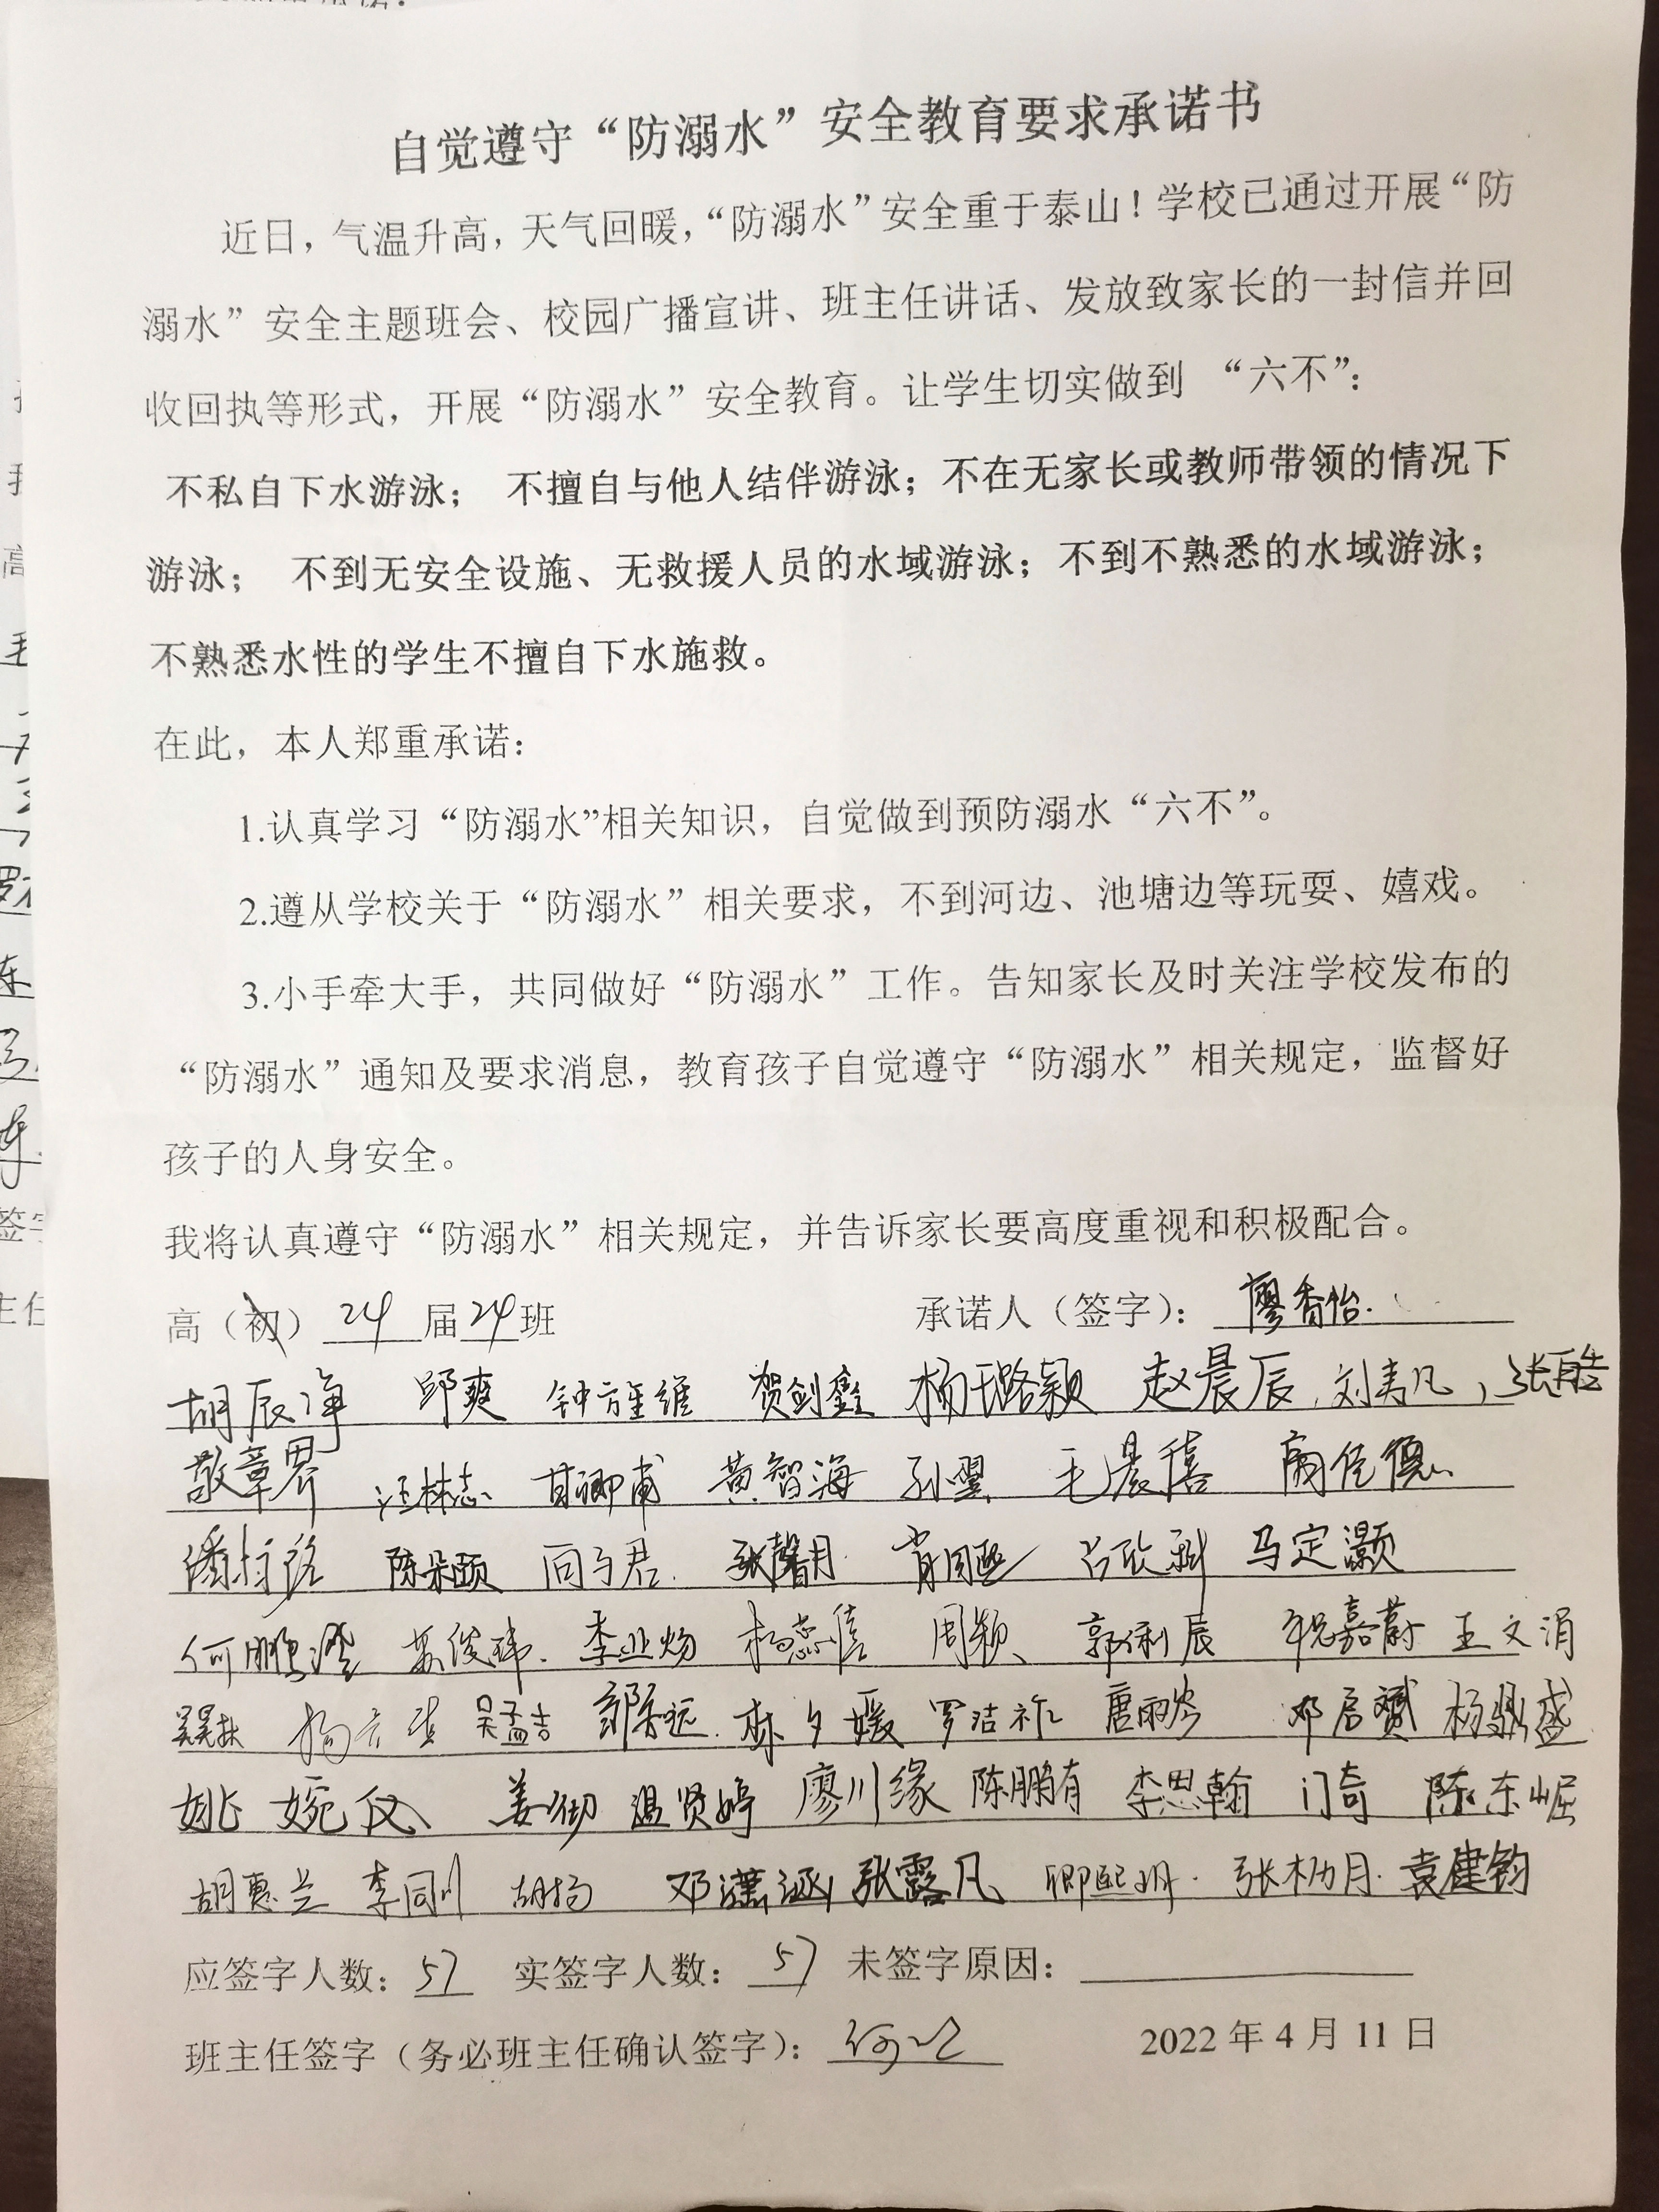 自觉遵守“防溺水”安全教育要求承诺书
近日，气温升高，天气回暖，“防溺水”安全重于泰山！学校已通过开展“防
溺水”安全主题班会、校园广播宣讲、班主任讲话、发放致家长的一封信并回
收回执等形式，开展“防溺水”安全教育。让学生切实做到 “六不”：
不私自下水游泳； 不擅自与他人结伴游泳；不在无家长或教师带领的情况下
游泳； 不到无安全设施、无救援人员的水域游泳；不到不熟悉的水域游泳；
不熟悉水性的学生不擅自下水施救。
在此，本人郑重承诺：
1.认真学习“防溺水”相关知识，自觉做到预防溺水“六不”。
2.遵从学校关于“防溺水”相关要求，不到河边、池塘边等玩耍、嬉戏。
3.小手牵大手，共同做好“防溺水”工作。告知家长及时关注学校发布的
“防溺水”通知及要求消息，教育孩子自觉遵守“防溺水”相关规定，监督好
孩子的人身安全。
我将认真遵守“防溺水”相关规定，并告诉家长要高度重视和积极配合。
高（初）24届24班 承诺人（签字）：廖香怡
胡辰净 邱爽 贺剑鑫 赵晨辰 张皓
敬章界 汪林志 甘卿甫 黄智海 孙翌 毛晨禧
陈朵颐 向与君 张馨月 吕欣利 马定灏
何鹏澄 苏俊玮 李业炀 杨蕊僖 周颖 郭俐辰 祝嘉蔚 王文涓
吴孟吉 林夕媛 罗洁祎 唐雨岑 邓启赟 杨鼎盛
姚婉仪 姜彻 温贤婷 廖川缘 陈鹏有 李思翰 门奇 陈东崛
胡惠兰 李同川 胡扬 邓潇涵 张露凡 张杨月 袁健钧
应签字人数：57 实签字人数：57 未签字原因：
班主任签字（务必班主任确认签字）： 2022 年 4 月 11 日